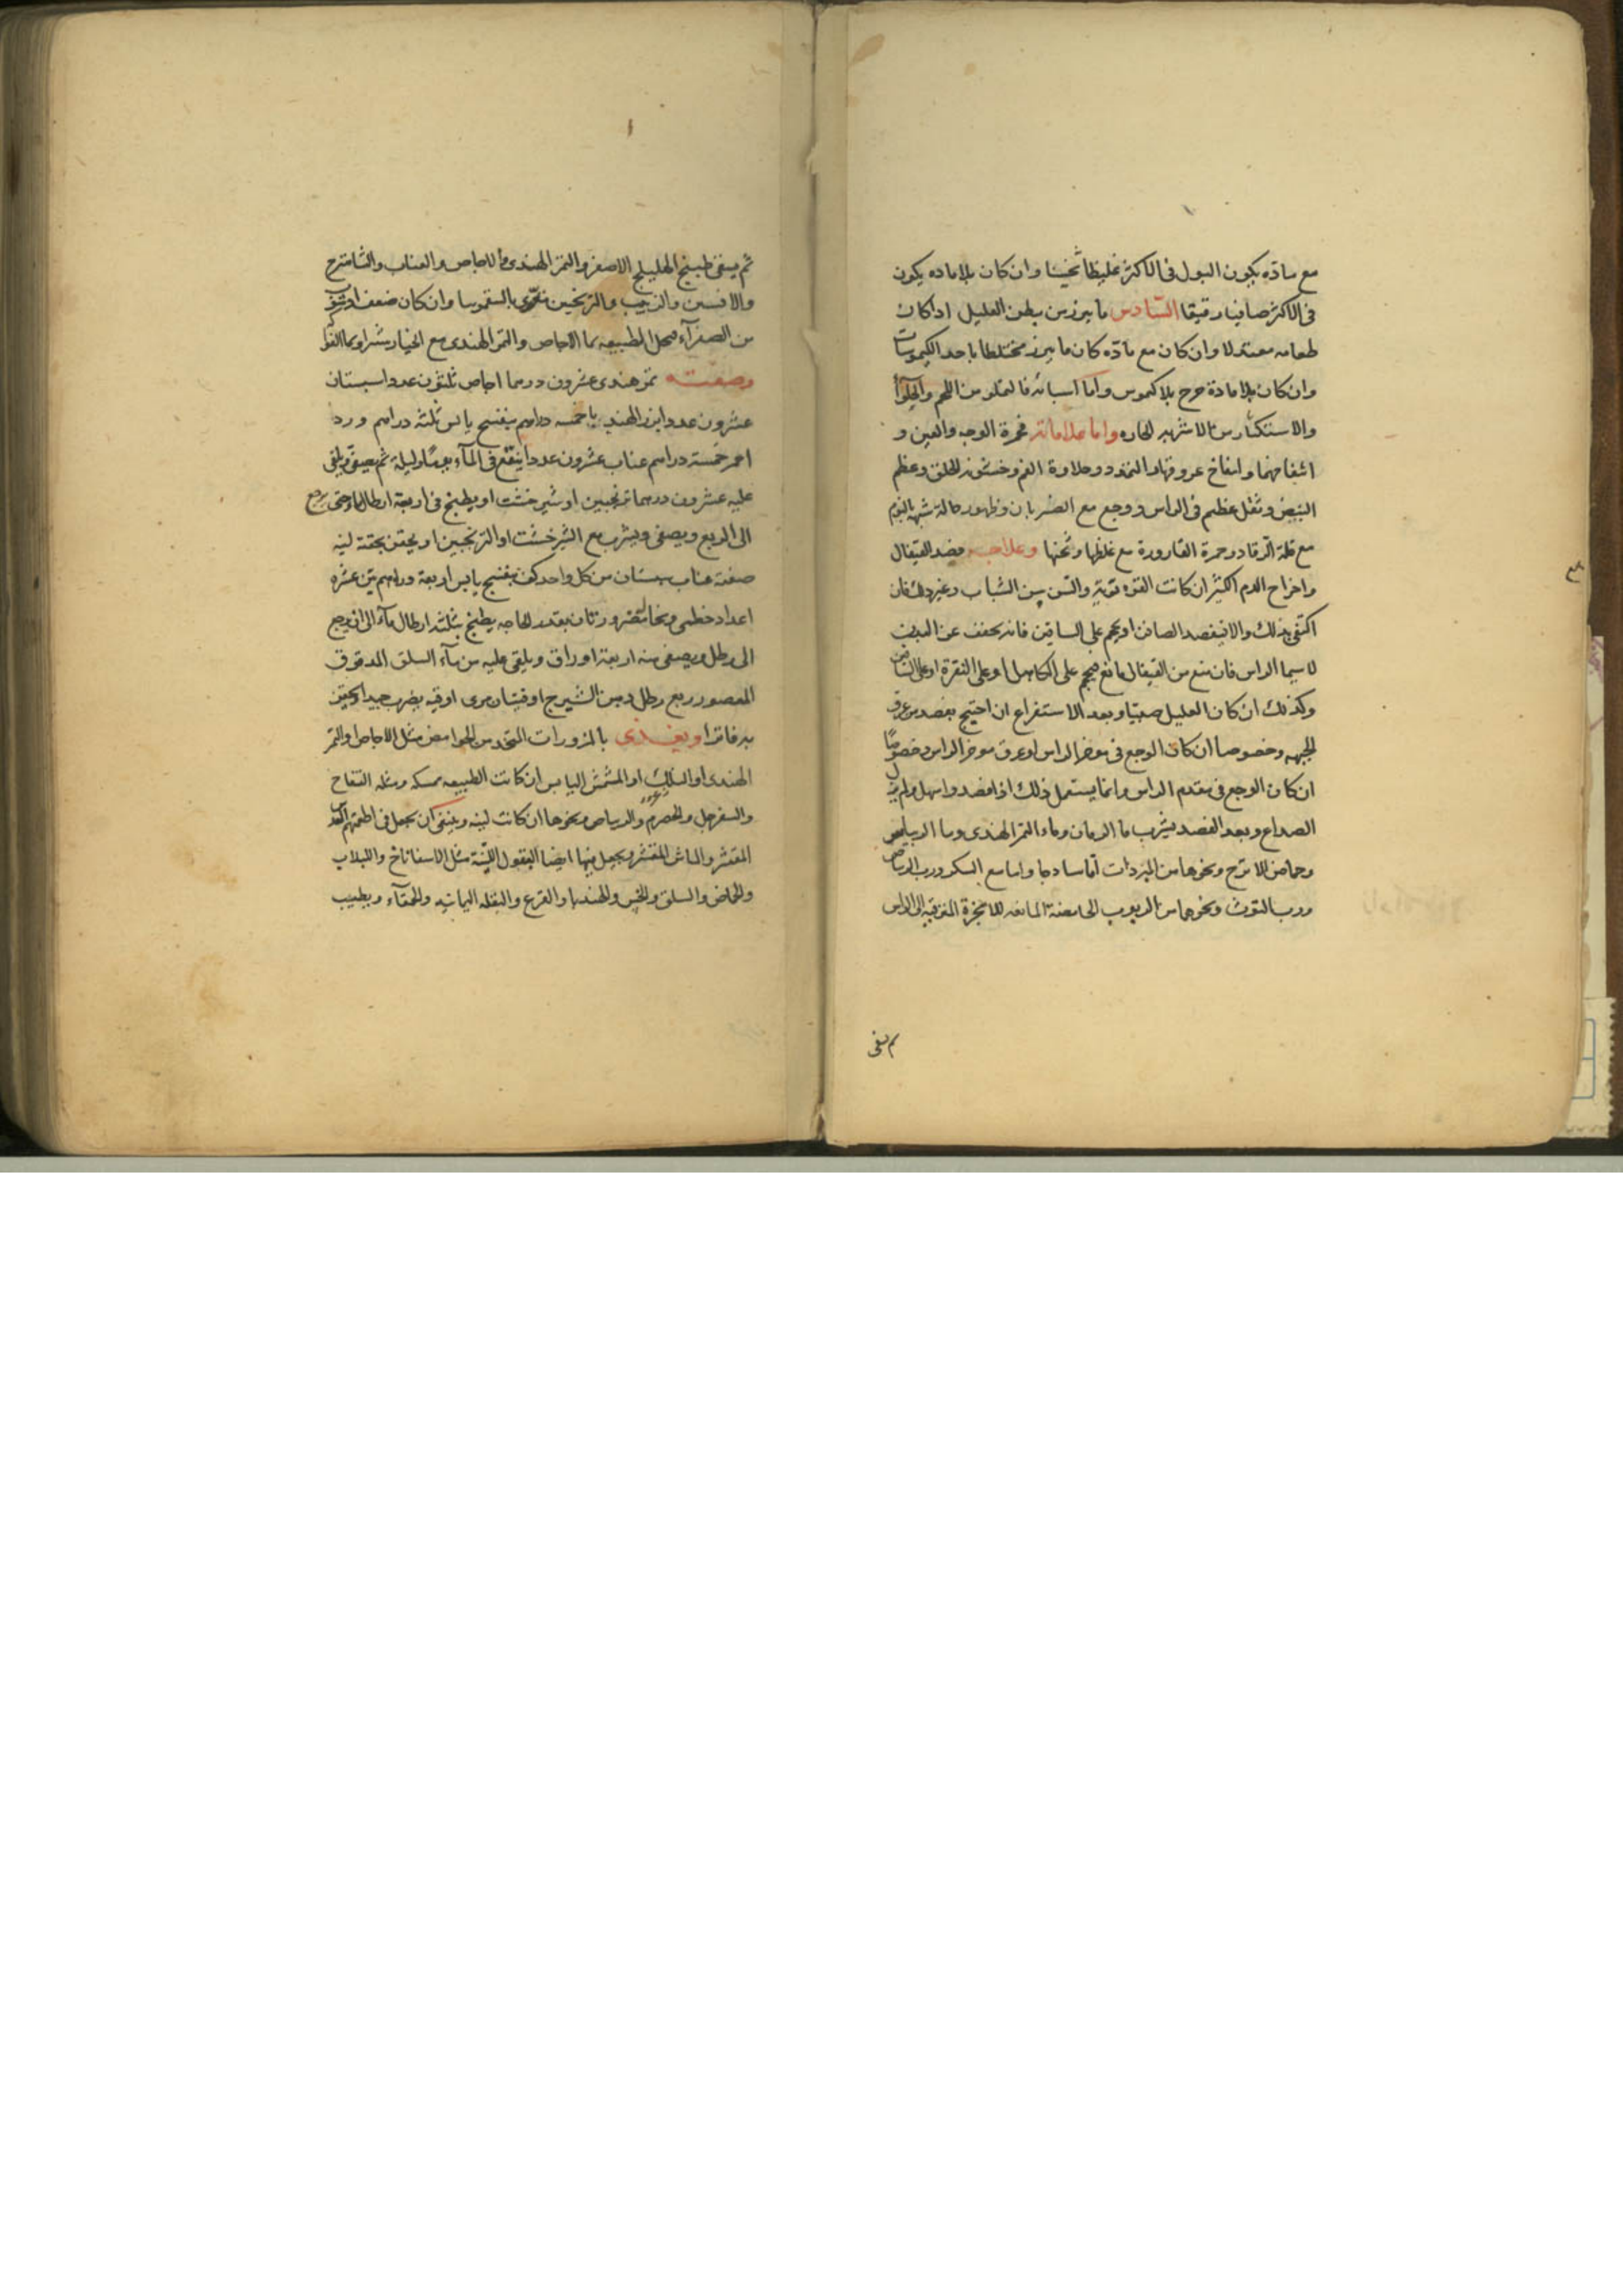 مع مادّه يكون البول فى الاكثر غليظا ثخينا وان كان بلا ماده يكون
فى الاكثر صافيا رقيقا السّادس ما يبرز من بطن العليل اذا كان
طعامه معتدلا وان كان مع مادّه كان ما يبرز مختلطا باحد الكيموسات
وان كان بلا مادة خرج بلا كيموس واما اسبابه فالتملو من اللحم والحلوآ
والاستكثار من الاشربه الحاره واما علاماته فحمرة الوجه والعين و
انتفاخهما وانتفاخ عروقها والتمدد وحلاوة الفم وخشونه الحلق وعظم
النبض وثقل عظيم فى الراس ووجع مع الضربان وظهور حالة شبه النوم
مع قلة الرقاد وحمرة القارورة مع غلظها وثخنها وعلاجه فصد القيفال
واخراج الدم الكثير ان كانت القوه قوية والسن سن الشباب وغير ذلك فان
اكتفى بذلك والا فيفصد الصافن او يحجم على الساقين فانه يخفف عن البدن
لا سيما الراس فان منع من القيفال مانع حجم على الكاهل او على النقرة او على الساقين
وكذلك ان كان العليل صبيّا وبعد الاستفراغ ان احتيج بفصد من عرق
الجبهه وخصوصا ان كان الوجع فى موخر الراس او عرق موخر الراس وخصوصًا
ان كان الوجع فى مقدم الراس وانما يستعمل ذلك اذا فصد واسهل ولم يزل
الصداع وبعد الفصد يشرب ما الرمان وماء التمر الهندى وما الريباس
وحماض الاترج ونحوها من المبردات امّا ساذجا واما مع السكر ورب الريباس
ورب التوث ونحوها من الربوب الحامضة المانعه للابخرة المترقية الى الراس
ثم يسقى
ثم يسقى طبيخ الهليلج الاصفر والتمر الهندى والاجاص والعناب والشاهترج
والافسنتين والزبيب والترنجبين مقوّى بالسقمونيا وان كان ضعف
من الصفرآء فحل الطبيعه بما الاجاص والتمر الهندى مع الخيارشنبر او بما الفواكه
وصفته تمر هندى عشرون درهما اجاص ثلثون عددا سبستان
عشرون عددا بزر الهندبا خمسه دراهم بنفسج يابس ثلثه دراهم ورد
احمر خمسة دراهم عناب عشرون عددا ينقع فى المآء يومًا وليلة ثم يصفى ويلقى
عليه عشرون درهما ترنجبين او شير خشت او يطبخ فى اربعة ارطال ماء حتى يرجع
الى الربع ويصفى ويشرب مع الشيرخشت او الترنجبين او يحقن بحقنة لينه
صفته عناب سبستان من كل واحد كف بنفسج يابس اربعة دراهم تين عشرة
اعداد خطمى ونخالة من بقدر الحاجه يطبخ بثلثه ارطال مآء الى ان يرجع
الى رطل ويصفى منه اربعة اوراق ويلقى عليه من مآء السلق المدقوق
المعصور ربع رطل دهن الشيرج اوقيتان مرى اوقيه يضرب جيدا ويحقن
به فاترا ويغذى بالمزورات المتخذه من الحوامض مثل الاجاص والتمر
الهندى او النلك او المشمش اليابس ان كانت الطبيعه ممسكه ومثله التفاح
والسفرجل والحصرم والريباس ونحوها ان كانت لينه وينبغى ان يجعل فى اطعمتهم العدس
المقشر والماش المقشر ويجعل فيها ايضا البقول الليّنة مثل الاسفاناخ واللبلاب
والحماض والسلق والخس والهندبا والقرع والبقله اليمانيه والقثآء ويطيب